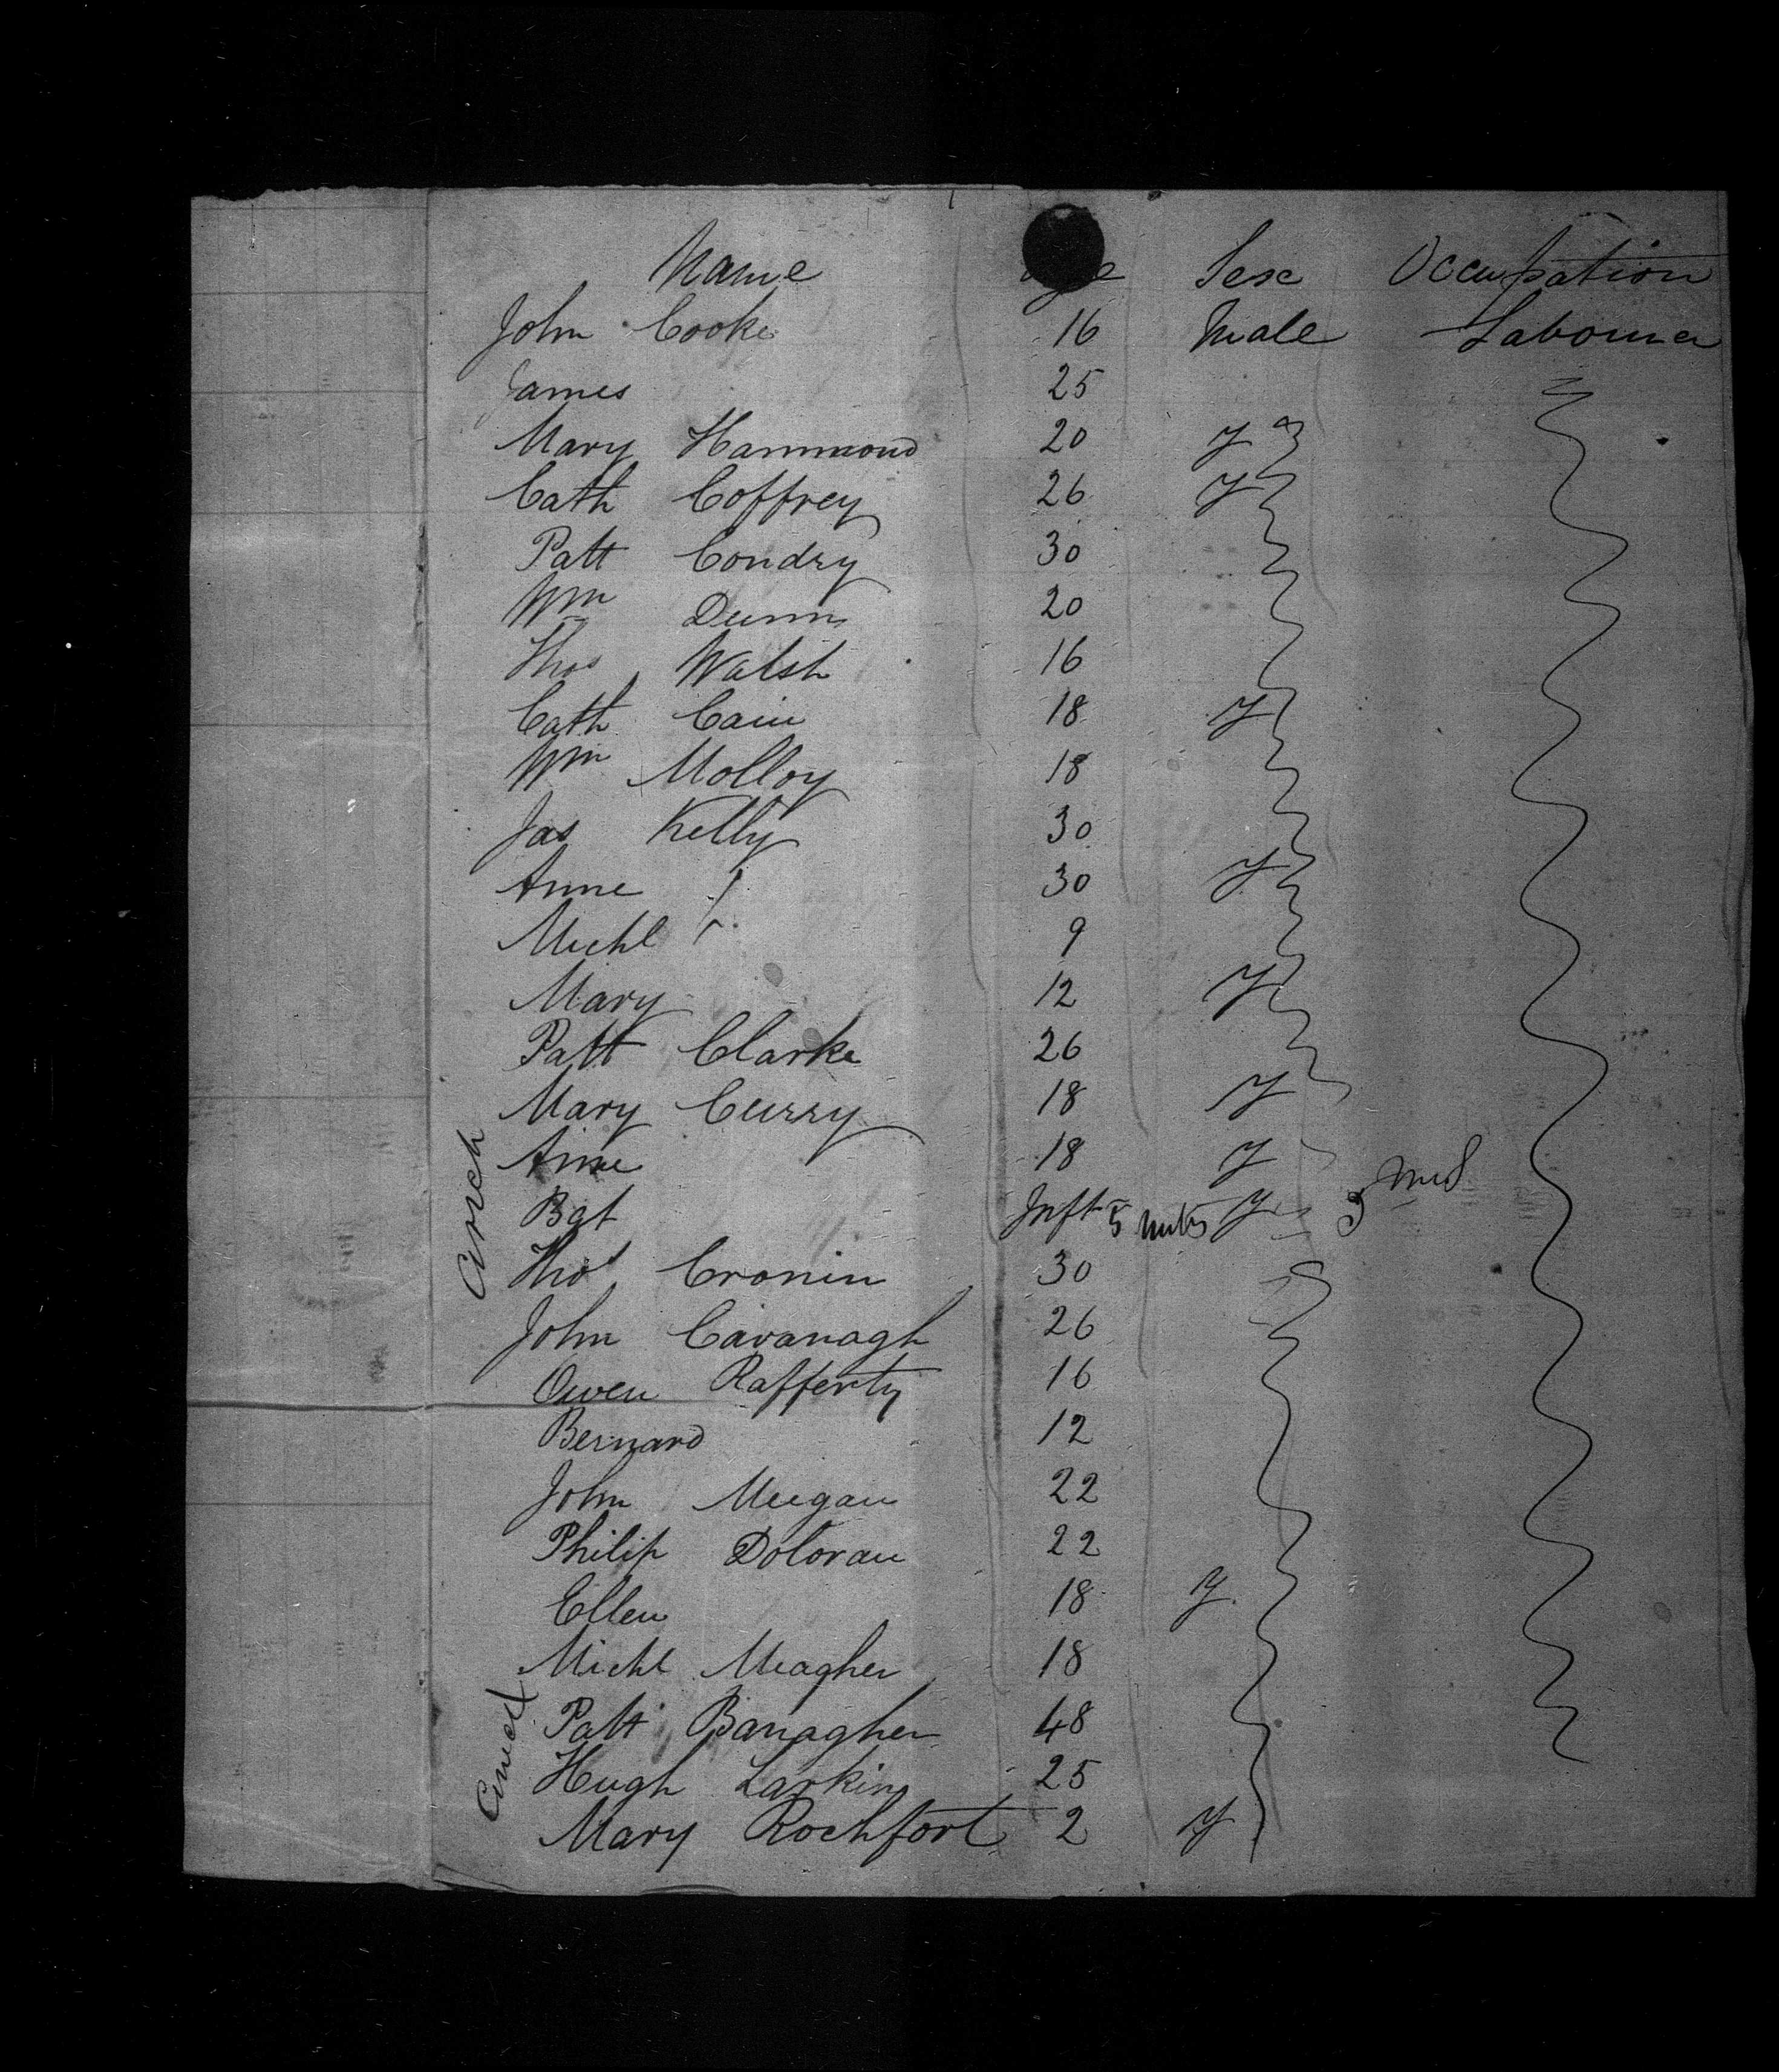 Name Age Sex Occupation
John Cooke 16 Male Labourer
James 25
Mary Hammond 20 F
Cath Coffrey 26 F
Patt Condry 30
Wm Dunn 20
Thos Walsh 16
Cath Cain 18 F
Wm Molloy 18
Jas Kelly 30
Anne 30 F
Michl 9
Mary 12 F
Patt Clarke 26
Mary Curry 18 F
Anne 18 F
Bgt Inft 5 F
Thos Cronin 30
John Cavanagh 26
Owen Rafferty 16
Bernard 12
John Meegan 22
Philip Doloran 22
Ellen 18 F
Michl Meagher 18
Patt Banagher 48
Hugh Larkin 25
Mary Rochfort 2 F